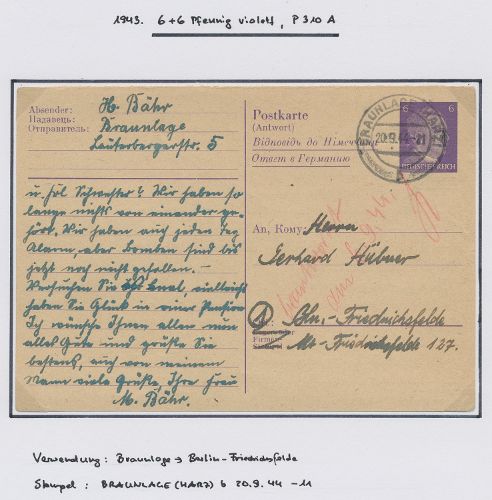 1943. 6+6 Pfennig violett, P 310 A
Absender: H. Bähr
Надавець: Braunlage
Отправитель: Lauterbergerstr. 5
Postkarte
(Antwort)
Відповідь до Німеччини
Ответ в Германию
6 6
DEUTSCHES REICH
BRAUNLAGE (HARZ)
20.9.44-11
b
u. frl Schwester! Wir haben so
lange nichts von einander ge-
hört. Wir haben auch jeden Tag
Alarm, aber Bomben sind bis
jetzt noch nicht gefallen.
Versuchen Sie mal, vielleicht
haben Sie Glück in einer Pension
Ich wünsche Ihnen allen nun
alles Gute und grüße Sie
bestens, auch von meinem
Mann viele Grüße, Ihre Frau
M. Bähr.
An, Кому: Herrn
Gerhard Hübner
Bln.-Friedrichsfelde
Alt-Friedrichsfelde 127.
Verwendung: Braunlage → Berlin-Friedrichsfelde
Stempel: BRAUNLAGE (HARZ) b 20.9.44 -11